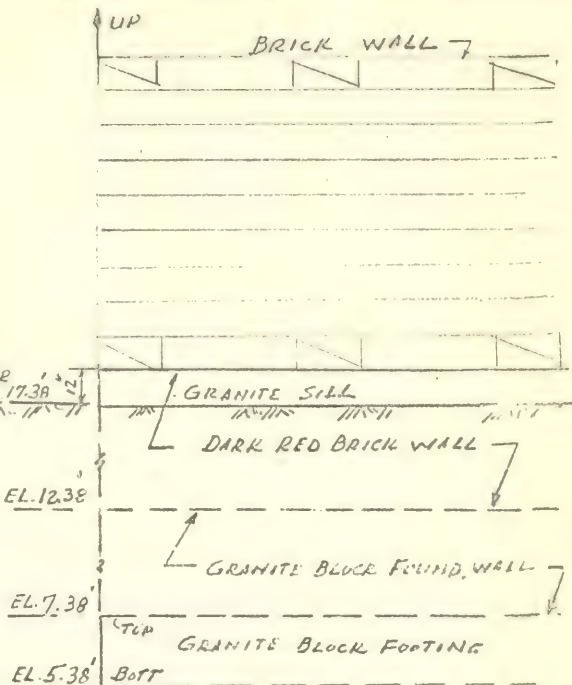 UP
BRICK WALL
17.38'
12"
GRANITE SILL
DARK RED BRICK WALL
EL. 12.38'
GRANITE BLOCK FOUND. WALL
EL. 7.38'
TOP
GRANITE BLOCK FOOTING
EL. 5.38'
BOTT